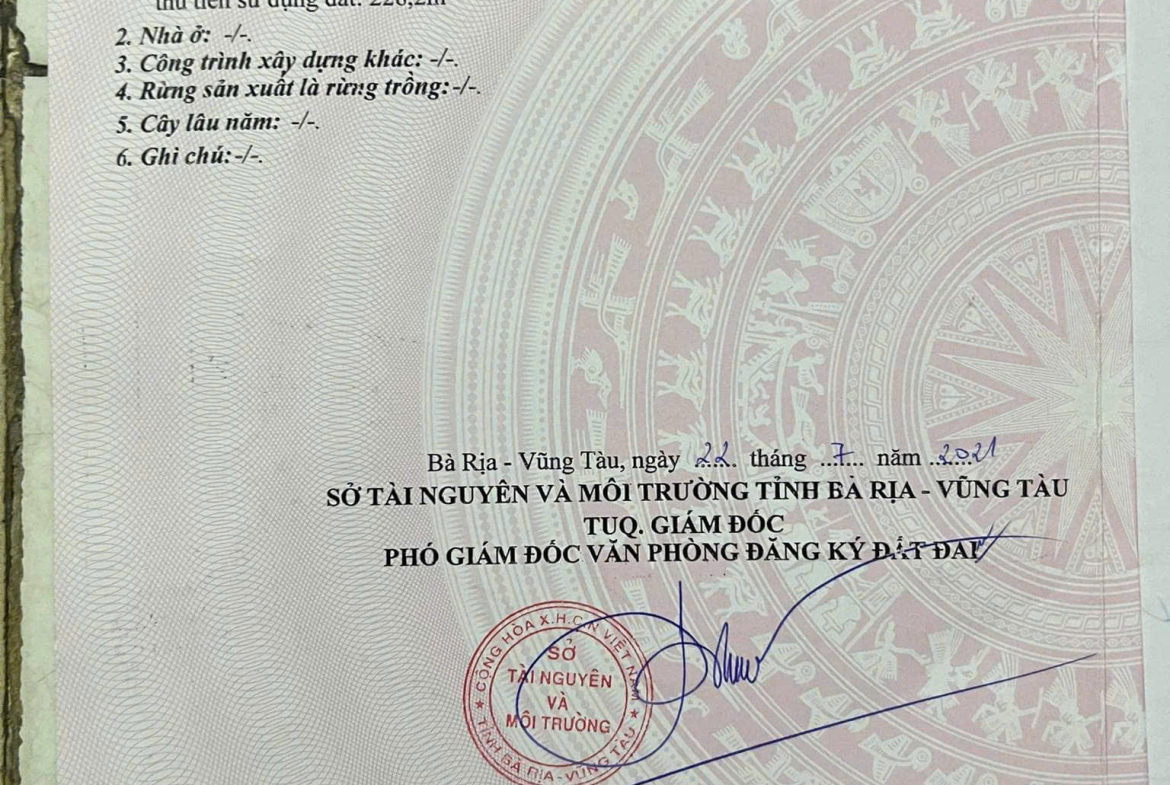 thu tiền sử dụng đất: 226,2m
2. Nhà ở: -/-.
3. Công trình xây dựng khác: -/-.
4. Rừng sản xuất là rừng trồng:-/-.
5. Cây lâu năm: -/-.
6. Ghi chú:-/-.
Bà Rịa - Vũng Tàu, ngày 22 tháng 7 năm 2021
SỞ TÀI NGUYÊN VÀ MÔI TRƯỜNG TỈNH BÀ RỊA - VŨNG TÀU
TUQ. GIÁM ĐỐC
PHÓ GIÁM ĐỐC VĂN PHÒNG ĐĂNG KÝ ĐẤT ĐAI
CỘNG HÒA X.H.C.N VIỆT NAM
SỞ
TÀI NGUYÊN
VÀ
MÔI TRƯỜNG
TỈNH BÀ RỊA-VŨNG TÀU